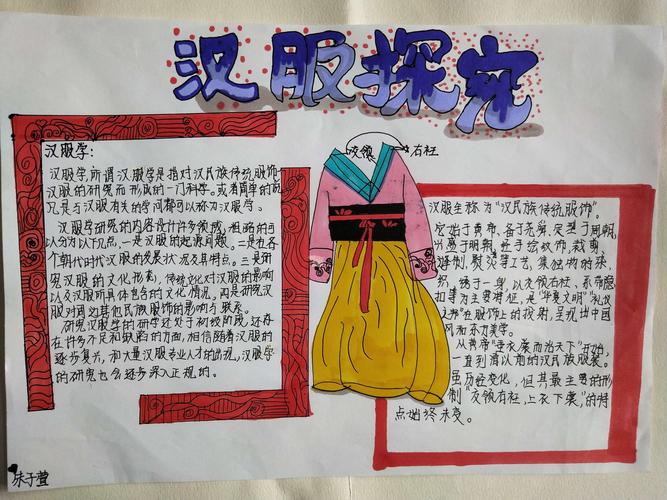 汉服探究
交领 右衽
汉服学:
汉服学,所谓汉服学是指对汉民族传统服饰
汉服的研究而形成的一门科学。或者简单的说
凡是与汉服有关的学问都可以称为汉服学。
汉服学研究的内容设计许多领域,粗略的可
以分为以下几点,一是汉服的起源问题。二是在各
个朝代时代汉服的发展状况及其特点。三是研
究汉服的文化形态,传统文化对汉服的影响
以及汉服所具体包含的文化情况。四是研究汉
服对周边其他民族服饰的影响与联系。
研究汉服学的研学还处于初级阶段,还存
在许多不足和缺陷的方面,相信随着汉服的
逐步复兴,和大量汉服专业人才的出现,汉服学
的研究也会逐步深入正规的。
汉服全称为“汉民族传统服饰”。
它始于黄帝,备于尧舜,定型于周朝,
于明朝,经手绘纹饰,裁剪
缝制,熨烫等工艺,集独构的染,
织,绣于一身,以交领右衽,系带隐
扣等为主要特征,是“华夏文明”“礼仪
之邦”在服饰上的投射,呈现出中国
风和东方美学。
从黄帝“垂衣裳而治天下”开始,
一直到清以前的汉民族服装。
虽历经变化,但其最主要的形
制“交领右衽,上衣下裳”,的特
点始终未变。
朱子萱